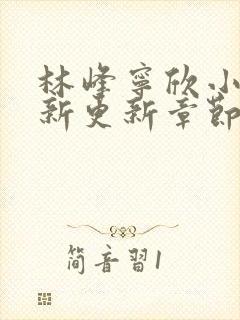 林峰寧欣小
新更新章節
简音習1